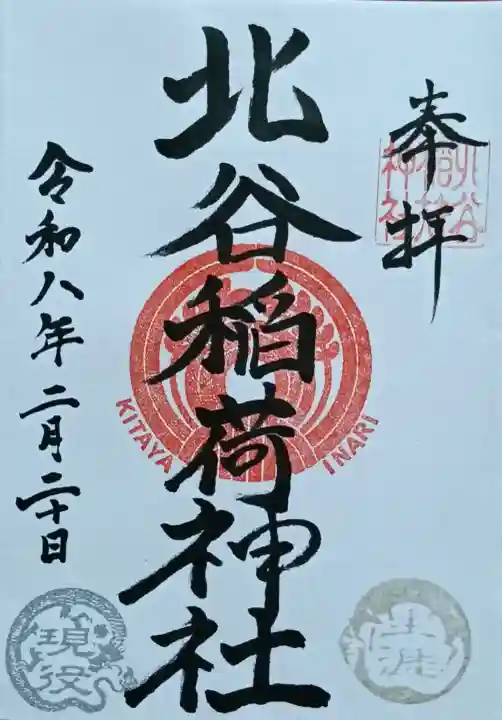 奉拝
北谷稲荷神社
北谷稲荷神社
KITAYA INARI
令和八年二月二十日
生涯
現役